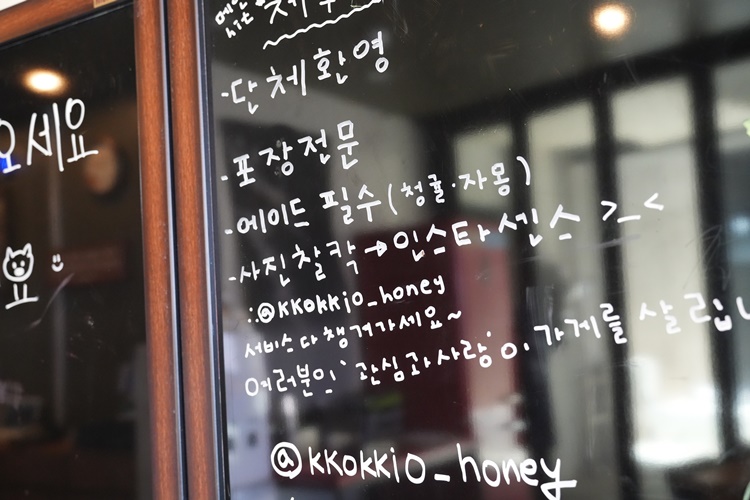 오세요
요
-단체환영
-포장전문
-에이드 필수(청귤·자몽)
-사진찰칵→인스타센스 >_<
:@kkokkio_honey
서비스다챙겨가세요~
여러분의 '관심과사랑'이.가게를 살립니
@kkokkio_honey